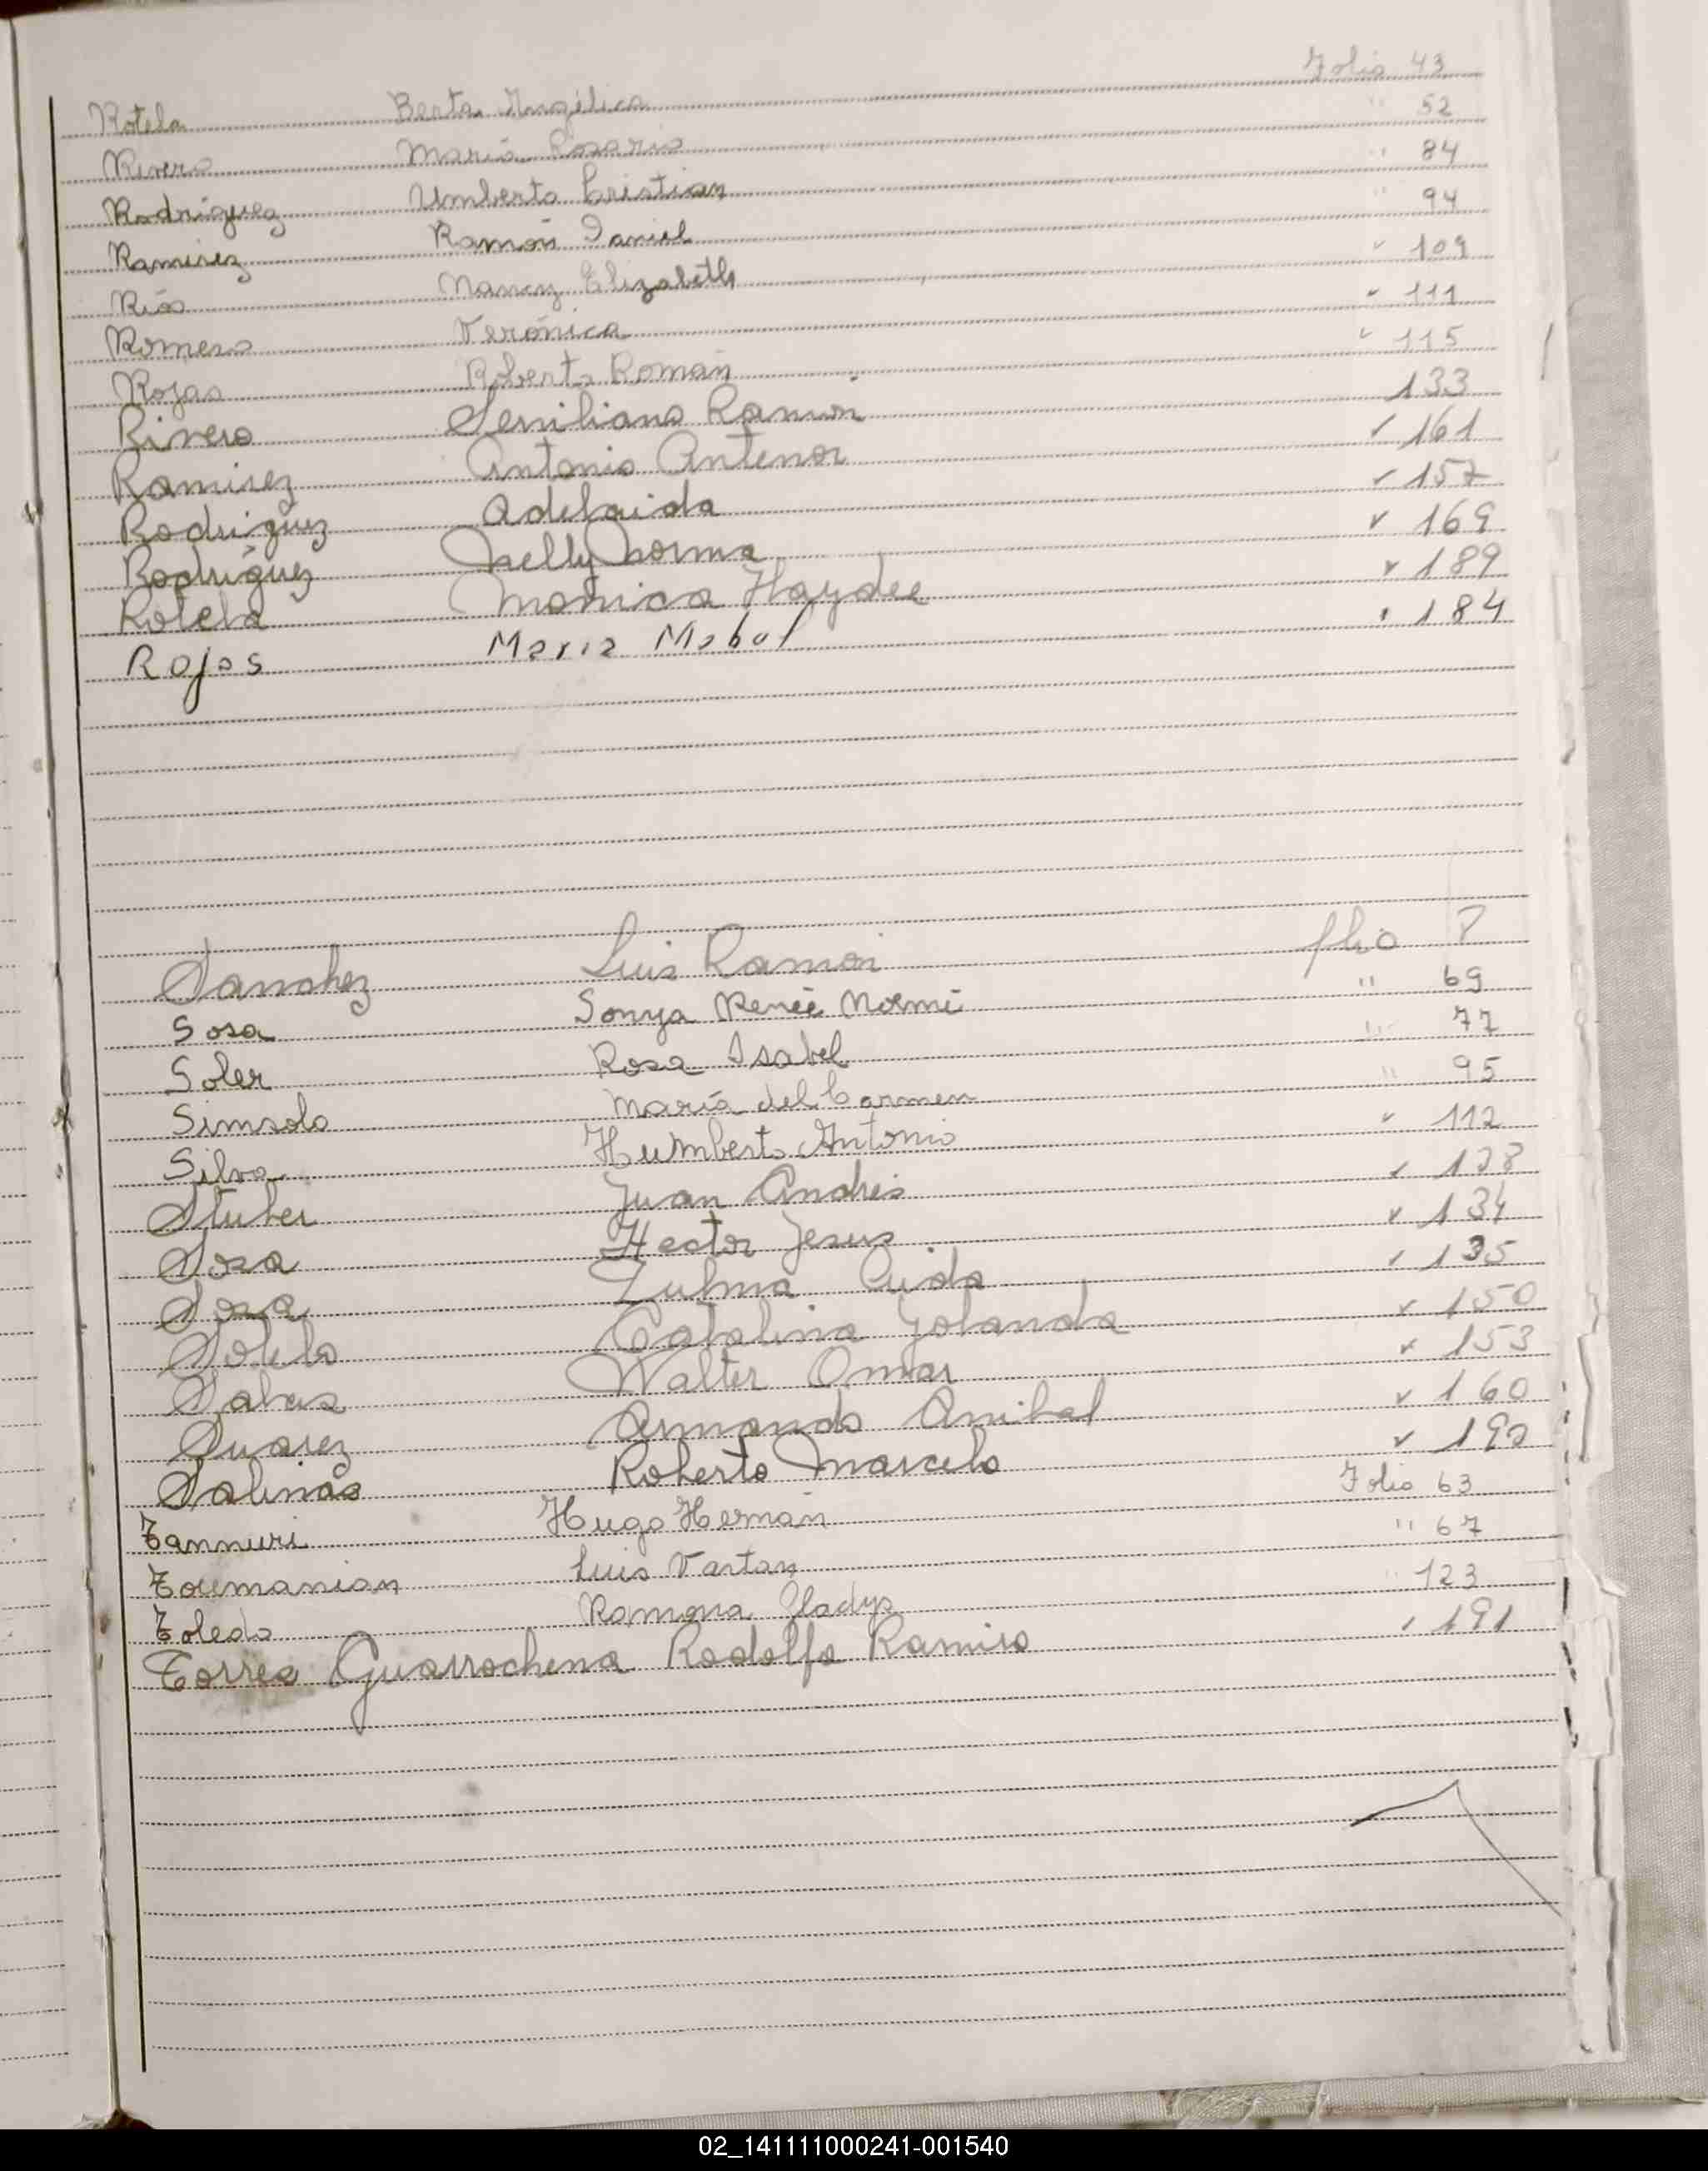 Rotela Berta Angélica Folio 43
Rivero María Rosario " 52
Rodríguez Umberto Cristian " 84
Ramirez Ramón Daniel " 94
Ríos Nancy Elizabeth " 109
Romero Verónica " 111
Rojas Roberto Román " 115
Rivero Ramon 133
Ramirez Antonio Antenor " 161
Rodriguez Adelaida " 157
Rodríguez Nelly Norma " 169
Rotela Monica Haydee " 189
Rojas Maria Mabel " 184
Sanchez Luis Ramon folio
Sosa Sonya Renée Noemí " 69
Soler Rosa Isabel " 77
Simsolo María del Carmen " 95
Silva Humberto Antonio " 112
Stuber Juan Andres "
Sosa Hector Jesus " 134
Sosa Zulma Aida " 135
Sotelo Catalina Yolanda " 150
Walter Omar " 153
Suarez Armando Anibal " 160
Salinas Roberto Marcelo "
Tannuri Hugo Hernán Folio 63
Toumanian Luis Vartan " 67
Toledo Ramona Gladys " 123
Torres Guarrochena Rodolfo Ramiro " 191
02_141111000241-001540